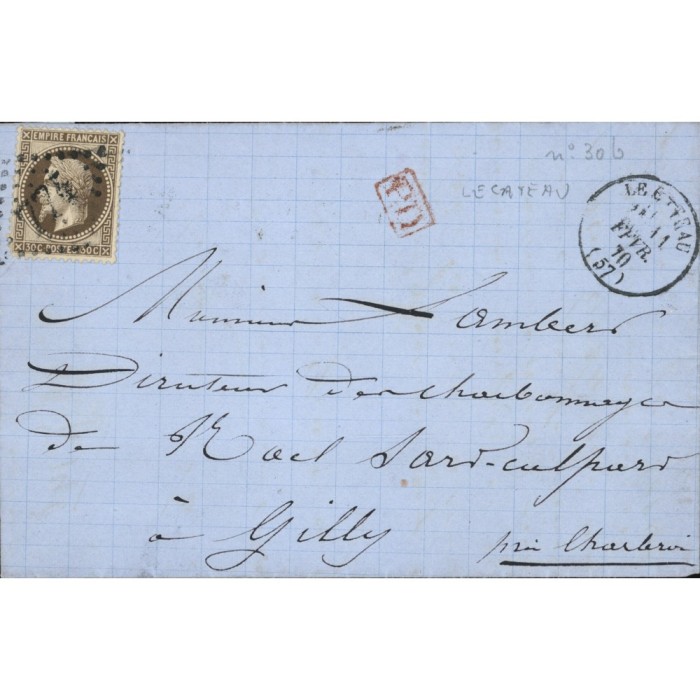 EMPIRE FRANÇAIS
30C POSTES 30C
n° 30 b
LECATEAU
PD
LE CATEAU
11
FEVR.
70
(57)
Monsieur Lambert
Directeur des Charbonnages
de Noël Sart-culpart
à Gilly
près Charleroi